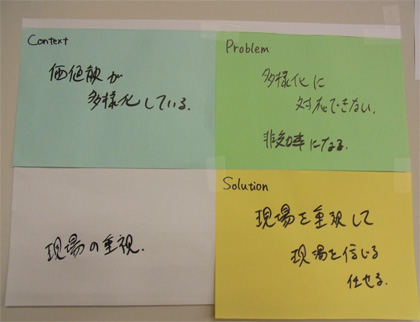 Context
価値観が
多様化している.
Problem
多様化に
対応できない.
非効率になる.
現場の重視.
Solution
現場を重視して
現場を信じる
任せる.